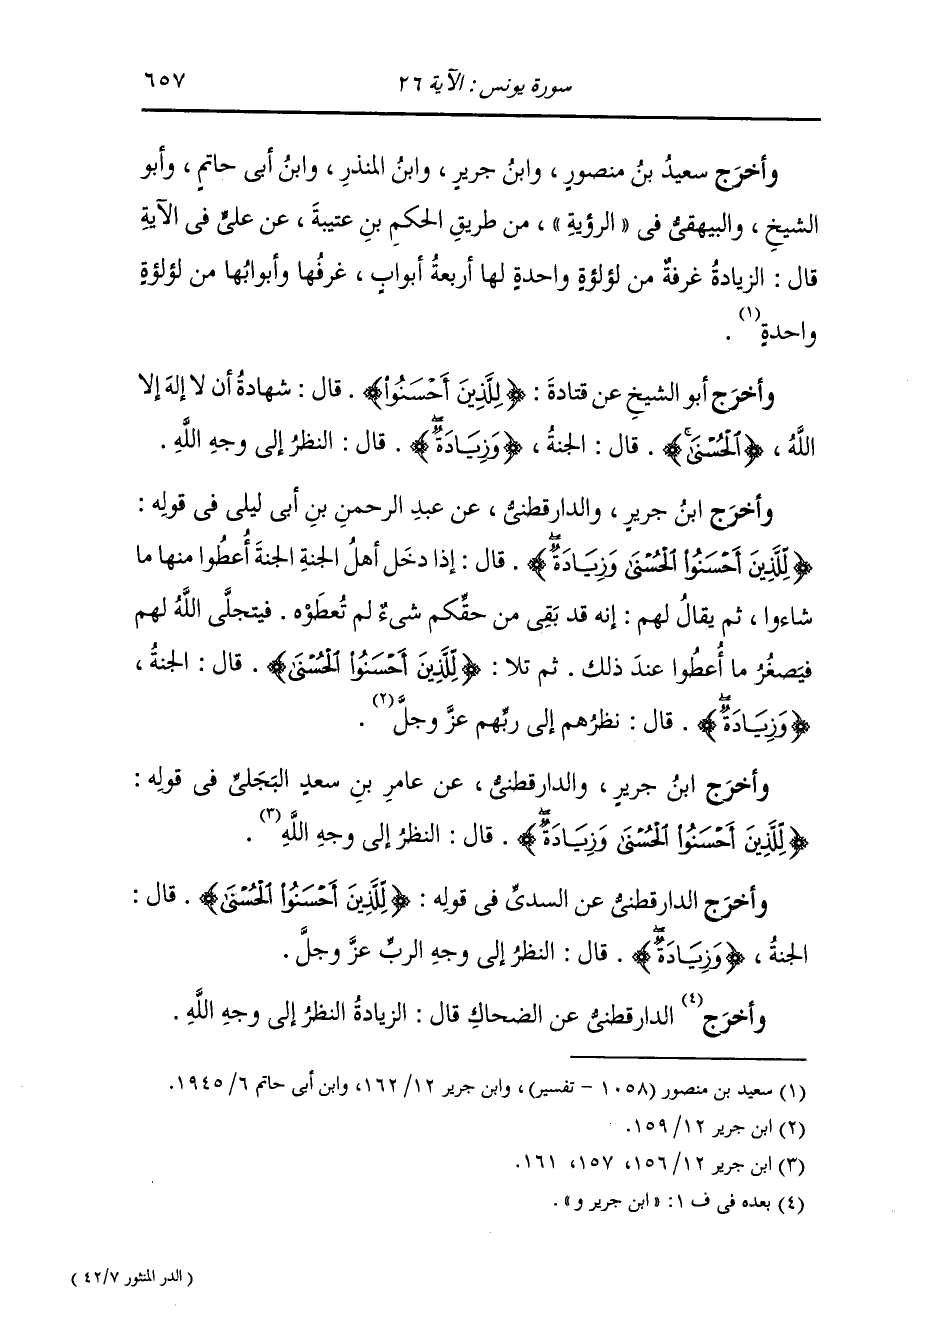 سورة يونس : الآية ٢٦ ٦٥٧
وأخرَج سعيدُ بنُ منصورٍ ، وابنُ جريرٍ ، وابنُ المنذرِ ، وابنُ أبى حاتمٍ ، وأبو
الشيخِ ، والبيهقىُّ فى « الرؤيةِ » ، من طريقِ الحكمِ بنِ عتيبةَ ، عن علىٍّ فى الآيةِ
قال : الزيادةُ غرفةٌ من لؤلؤةٍ واحدةٍ لها أربعةُ أبوابٍ ، غرفُها وأبوابُها من لؤلؤةٍ
واحدةٍ(١) .
وأخرَج أبو الشيخِ عن قتادةَ : ﴿لِّلَّذِينَ أَحْسَنُواْ﴾ . قال : شهادةُ أن لا إلهَ إلا
اللَّهُ ، ﴿ٱلْحُسْنَىٰ﴾ . قال : الجنةُ ، ﴿وَزِيَادَةٌ ۖ﴾ . قال : النظرُ إلى وجهِ اللَّهِ .
وأخرَج ابنُ جريرٍ ، والدارقطنىُّ ، عن عبدِ الرحمنِ بنِ أبى ليلى فى قولِه :
﴿لِّلَّذِينَ أَحْسَنُواْ ٱلْحُسْنَىٰ وَزِيَادَةٌ ۖ﴾ . قال : إذا دخَل أهلُ الجنةِ الجنةَ أُعطُوا منها ما
شاءوا ، ثم يقالُ لهم : إنه قد بَقِى من حقِّكم شىءٌ لم تُعطَوْه . فيتجلَّى اللَّهُ لهم
فيَصغُرُ ما أُعطُوا عندَ ذلك . ثم تلا : ﴿لِّلَّذِينَ أَحْسَنُواْ ٱلْحُسْنَىٰ﴾ . قال : الجنةُ ،
﴿وَزِيَادَةٌ ۖ﴾ . قال : نظرُهم إلى ربِّهم عزَّ وجلَّ(٢) .
وأخرَج ابنُ جريرٍ ، والدارقطنىُّ ، عن عامرِ بنِ سعدٍ البَجَلىِّ فى قولِه :
﴿لِّلَّذِينَ أَحْسَنُواْ ٱلْحُسْنَىٰ وَزِيَادَةٌ ۖ﴾ . قال : النظرُ إلى وجهِ اللَّهِ(٣) .
وأخرَج الدارقطنىُّ عن السدىِّ فى قولِه : ﴿لِّلَّذِينَ أَحْسَنُواْ ٱلْحُسْنَىٰ﴾ . قال :
الجنةُ ، ﴿وَزِيَادَةٌ ۖ﴾ . قال : النظرُ إلى وجهِ الربِّ عزَّ وجلَّ .
وأخرَج(٤) الدارقطنىُّ عن الضحاكِ قال : الزيادةُ النظرُ إلى وجهِ اللَّهِ .
(١) سعيد بن منصور (١٠٥٨ - تفسير) ، وابن جرير ١٢/ ١٦٢، وابن أبى حاتم ٦/ ١٩٤٥.
(٢) ابن جرير ١٢/ ١٥٩.
(٣) ابن جرير ١٢/ ١٥٦، ١٥٧، ١٦١.
(٤) بعده فى ف ١: « ابن جرير و» .
( الدر المنثور ٤٢/٧ )